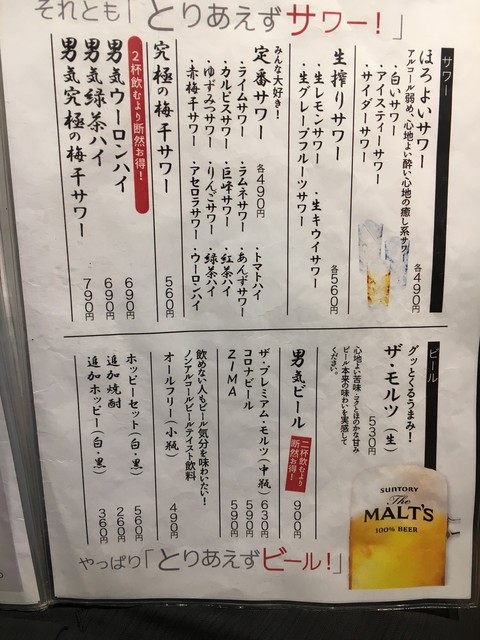 それとも「とりあえずサワー！」
サワー
ほろよいサワー
アルコール弱め、心地よい酔い心地の癒し系サワー
・白いサワー
・アイスティーサワー
・サイダーサワー
各490円
生搾りサワー
・生レモンサワー ・生キウイサワー
・生グレープフルーツサワー
各560円
みんな大好き！
定番サワー 各490円
・ライムサワー ・ラムネサワー ・トマトハイ
・カルピスサワー ・巨峰サワー ・あんずサワー
・ゆずみつサワー ・りんごサワー ・紅茶ハイ
・赤梅干サワー ・アセロラサワー ・緑茶ハイ
・ウーロンハイ
究極の梅干サワー 560円
2杯飲むより断然お得！
男気ウーロンハイ 690円
男気緑茶ハイ 690円
男気究極の梅干サワー 790円
ビール
グッとくるうまみ！
ザ・モルツ（生） 530円
心地よい苦味・コクとほのかな甘み
ビール本来の味わいを実感して
ください。
SUNTORY
The
MALT'S
100% BEER
男気ビール 二杯飲むより断然お得！ 900円
ザ・プレミアム・モルツ（中瓶） 630円
コロナビール 590円
ZIMA 590円
飲めない人もビール気分を味わいたい！
ノンアルコールビールテイスト飲料
オールフリー（小瓶） 490円
ホッピーセット（白・黒） 560円
追加焼酎 260円
追加ホッピー（白・黒） 360円
やっぱり「とりあえずビール！」